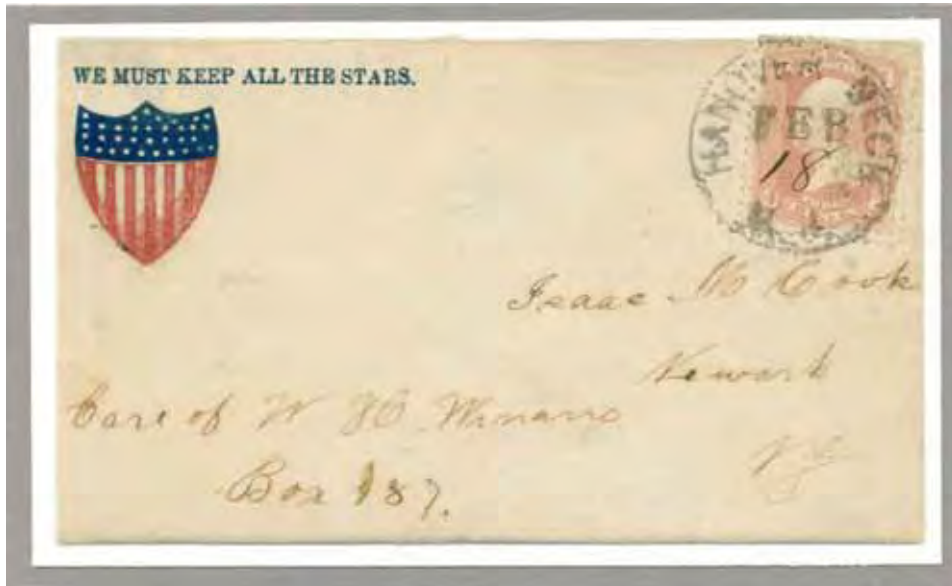 WE MUST KEEP ALL THE STARS.
HANOVER NECK
FEB
18
N.J.
Isaac M Cook
Newark
N J
Care of W H Winans
Box 187.